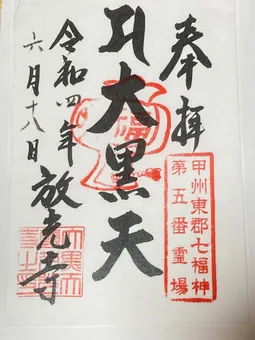 奉拝
甲州東郡七福神
第五番霊場
福
大黒天
令和四年
六月十八日
放光寺